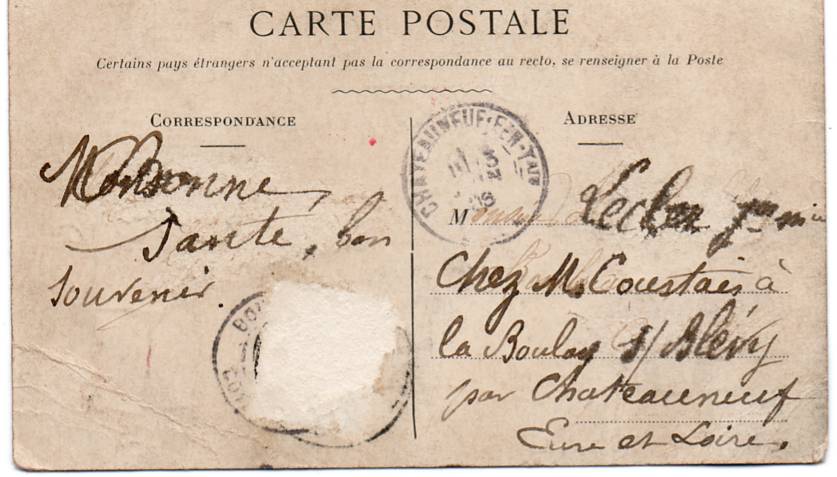 CARTE POSTALE
Certains pays étrangers n'acceptant pas la correspondance au recto, se renseigner à la Poste
CORRESPONDANCE
bonne
Santé, bon
souvenir.
ADRESSE
CHATEAUNEUF-EN-
M
Chez M. Coustais à
la Boulay s/ Blévy
par Chateauneuf
Eure et Loire.